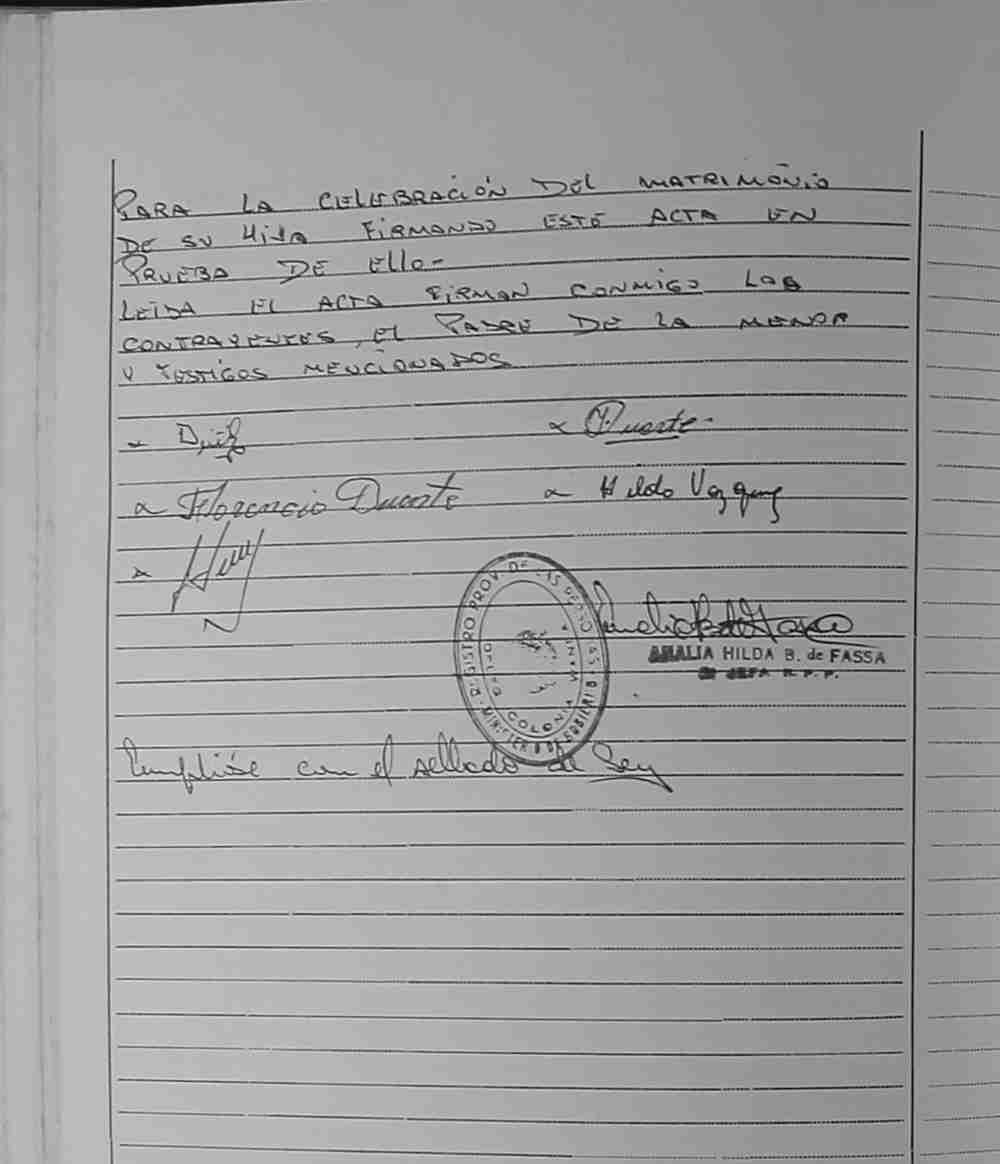 PARA LA CELEBRACIÓN DEL MATRIMONIO
DE SU HIJA FIRMANDO ESTE ACTA EN
PRUEBA DE ELLO-
LEIDA EL ACTA FIRMAN CONMIGO LOS
CONTRAYENTES, EL PADRE DE LA MENOR
Y TESTIGOS MENCIONADOS
Duarte-
Florencio Duarte
Hildo Vazquez
REGISTRO PROV. DE LAS PERSONAS
MINISTERIO DE GOBIERNO
COLONIA
AMALIA HILDA B. de FASSA
JEFA R. P. P.
Cumplióse con el sellado de Ley